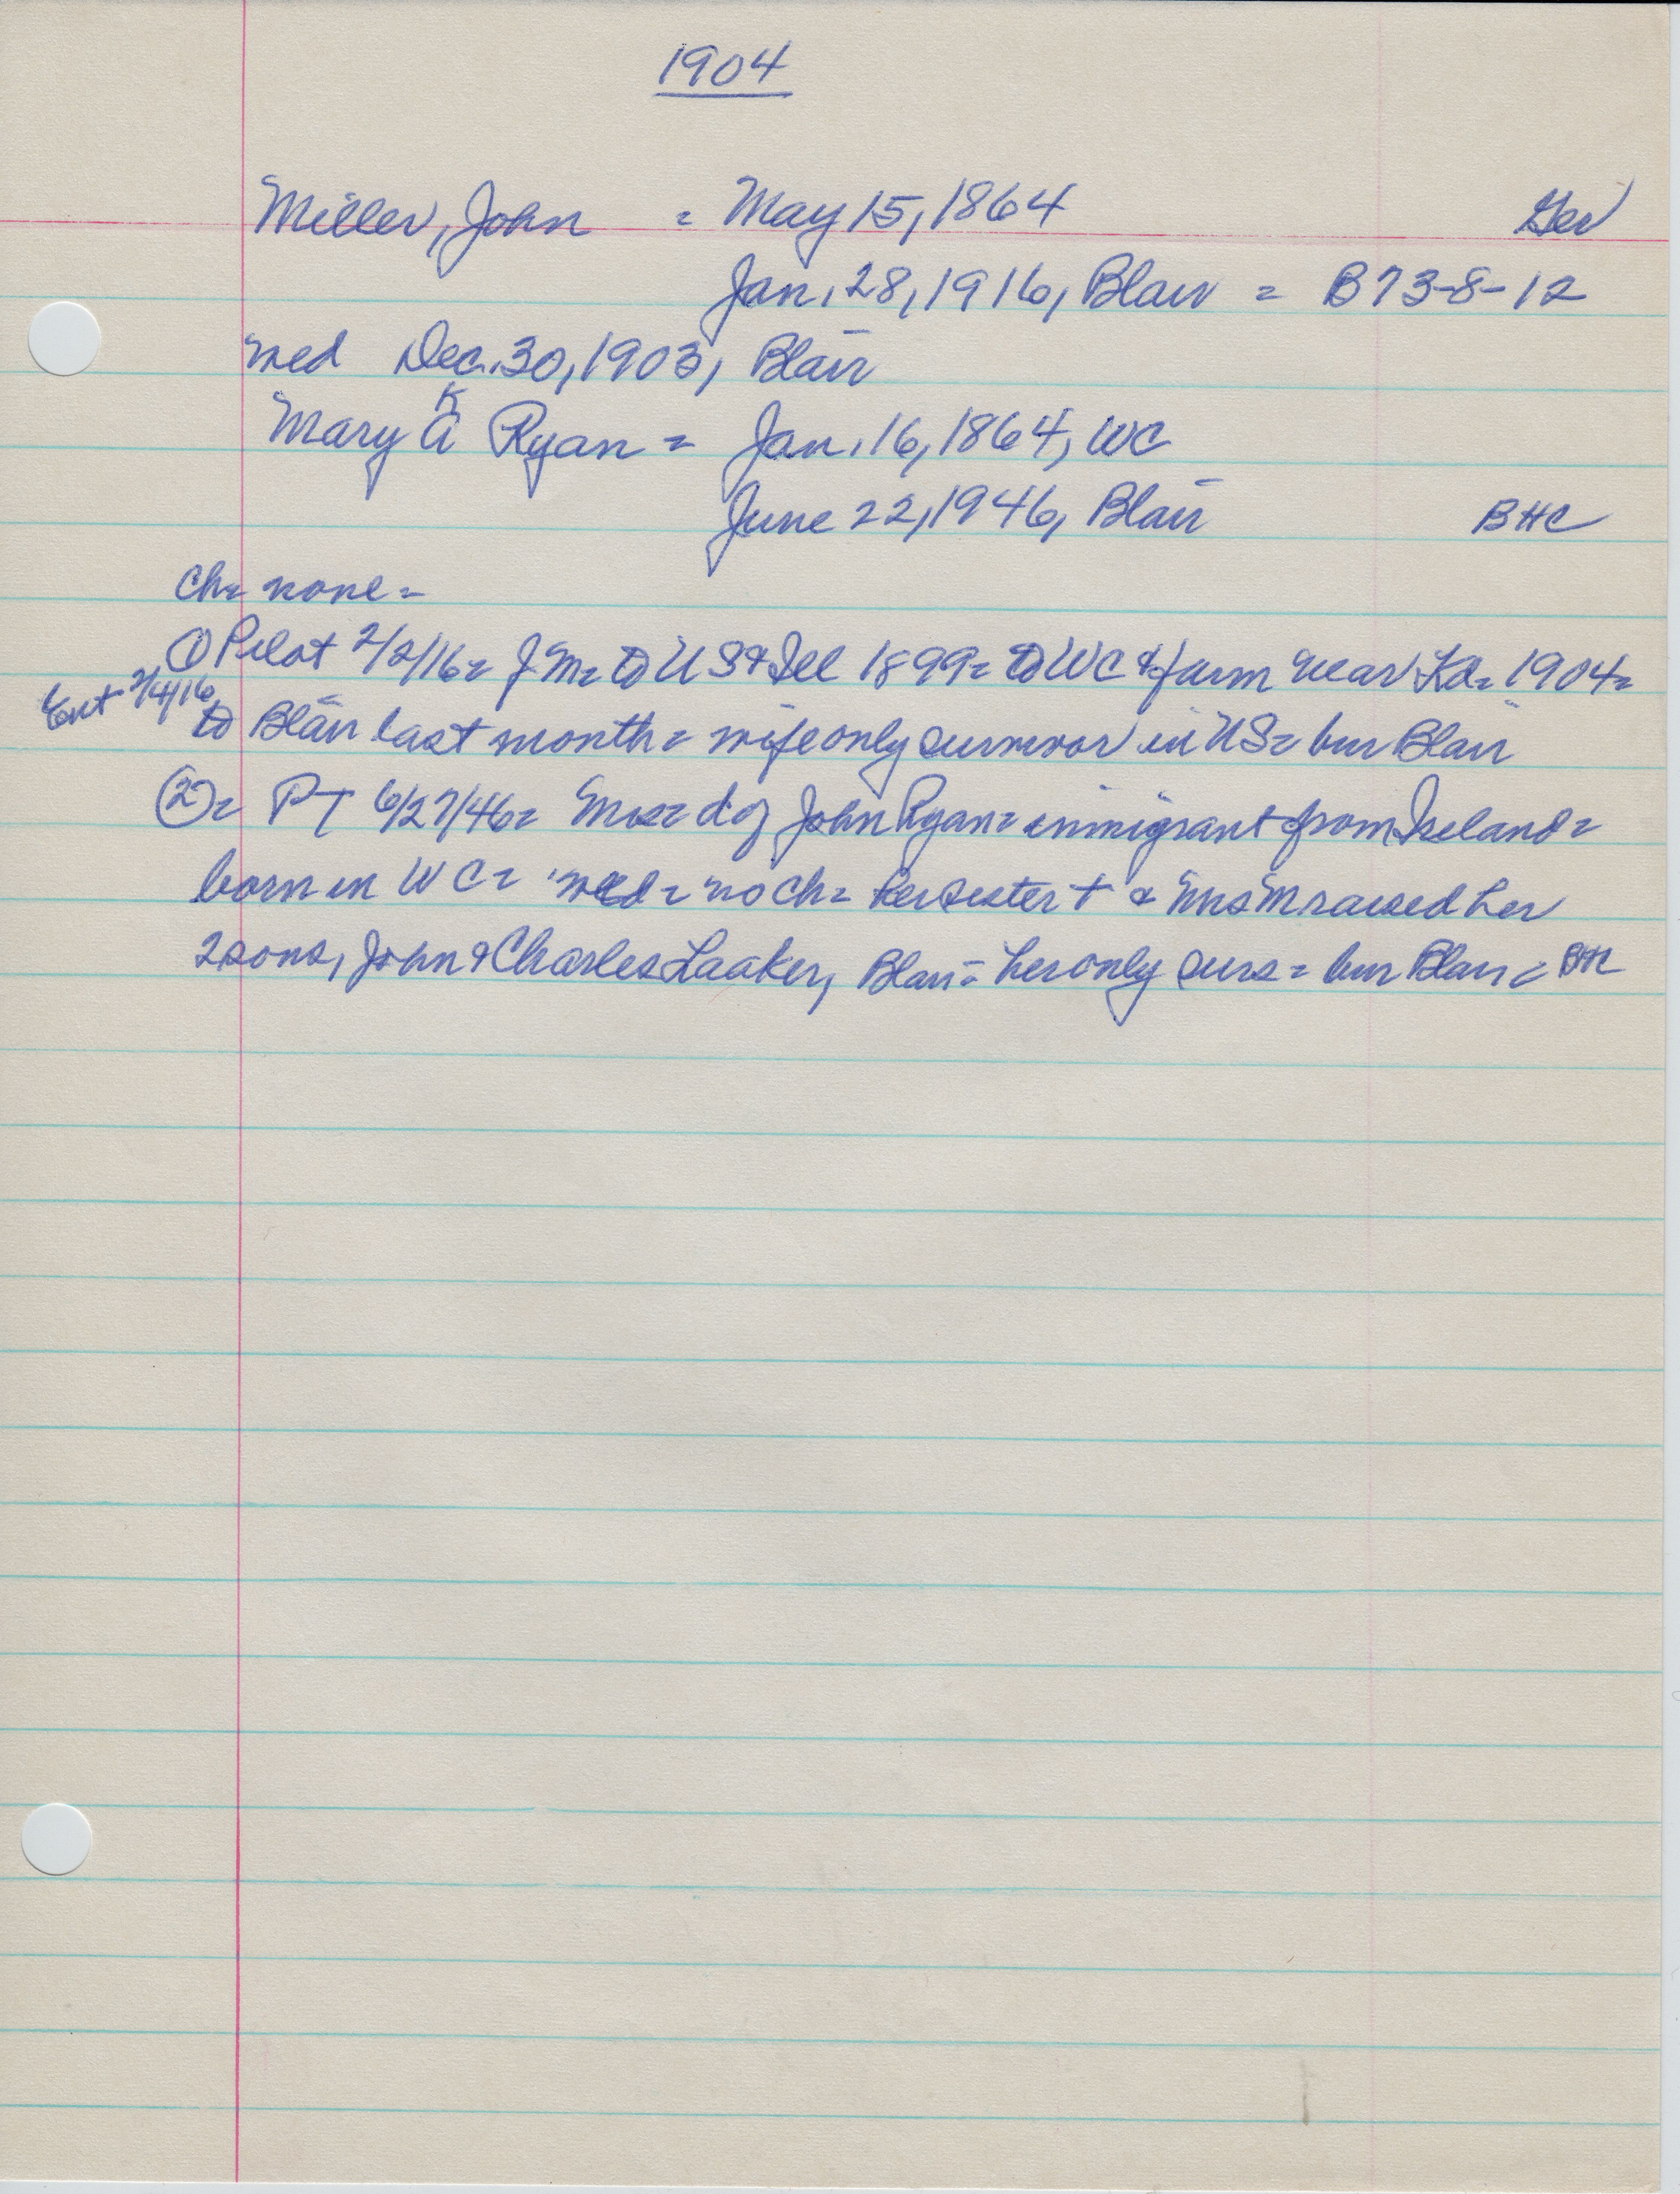 1904
Miller, John = May 15, 1864 Ger
Jan. 28, 1916, Blair = B73-8-12
med Dec. 30, 1903, Blair
K
Mary A Ryan = Jan. 16, 1864, WC
June 22, 1946, Blair BHC
Ch= none=
① Pilot 2/2/16= J M= to US & Ill 1899= to WC & farm near Kd= 1904=
Ent 2/4/16
to Blair last month= wife only survivor in US= bur Blair
②= PT 6/27/46= Mrs= d of John Ryan= immigrant from Ireland=
born in WC= med= no ch= her sister + & Mrs M raised her
2 sons, John & Charles Laaker, Blair= her only surs= bur Blair= BHC